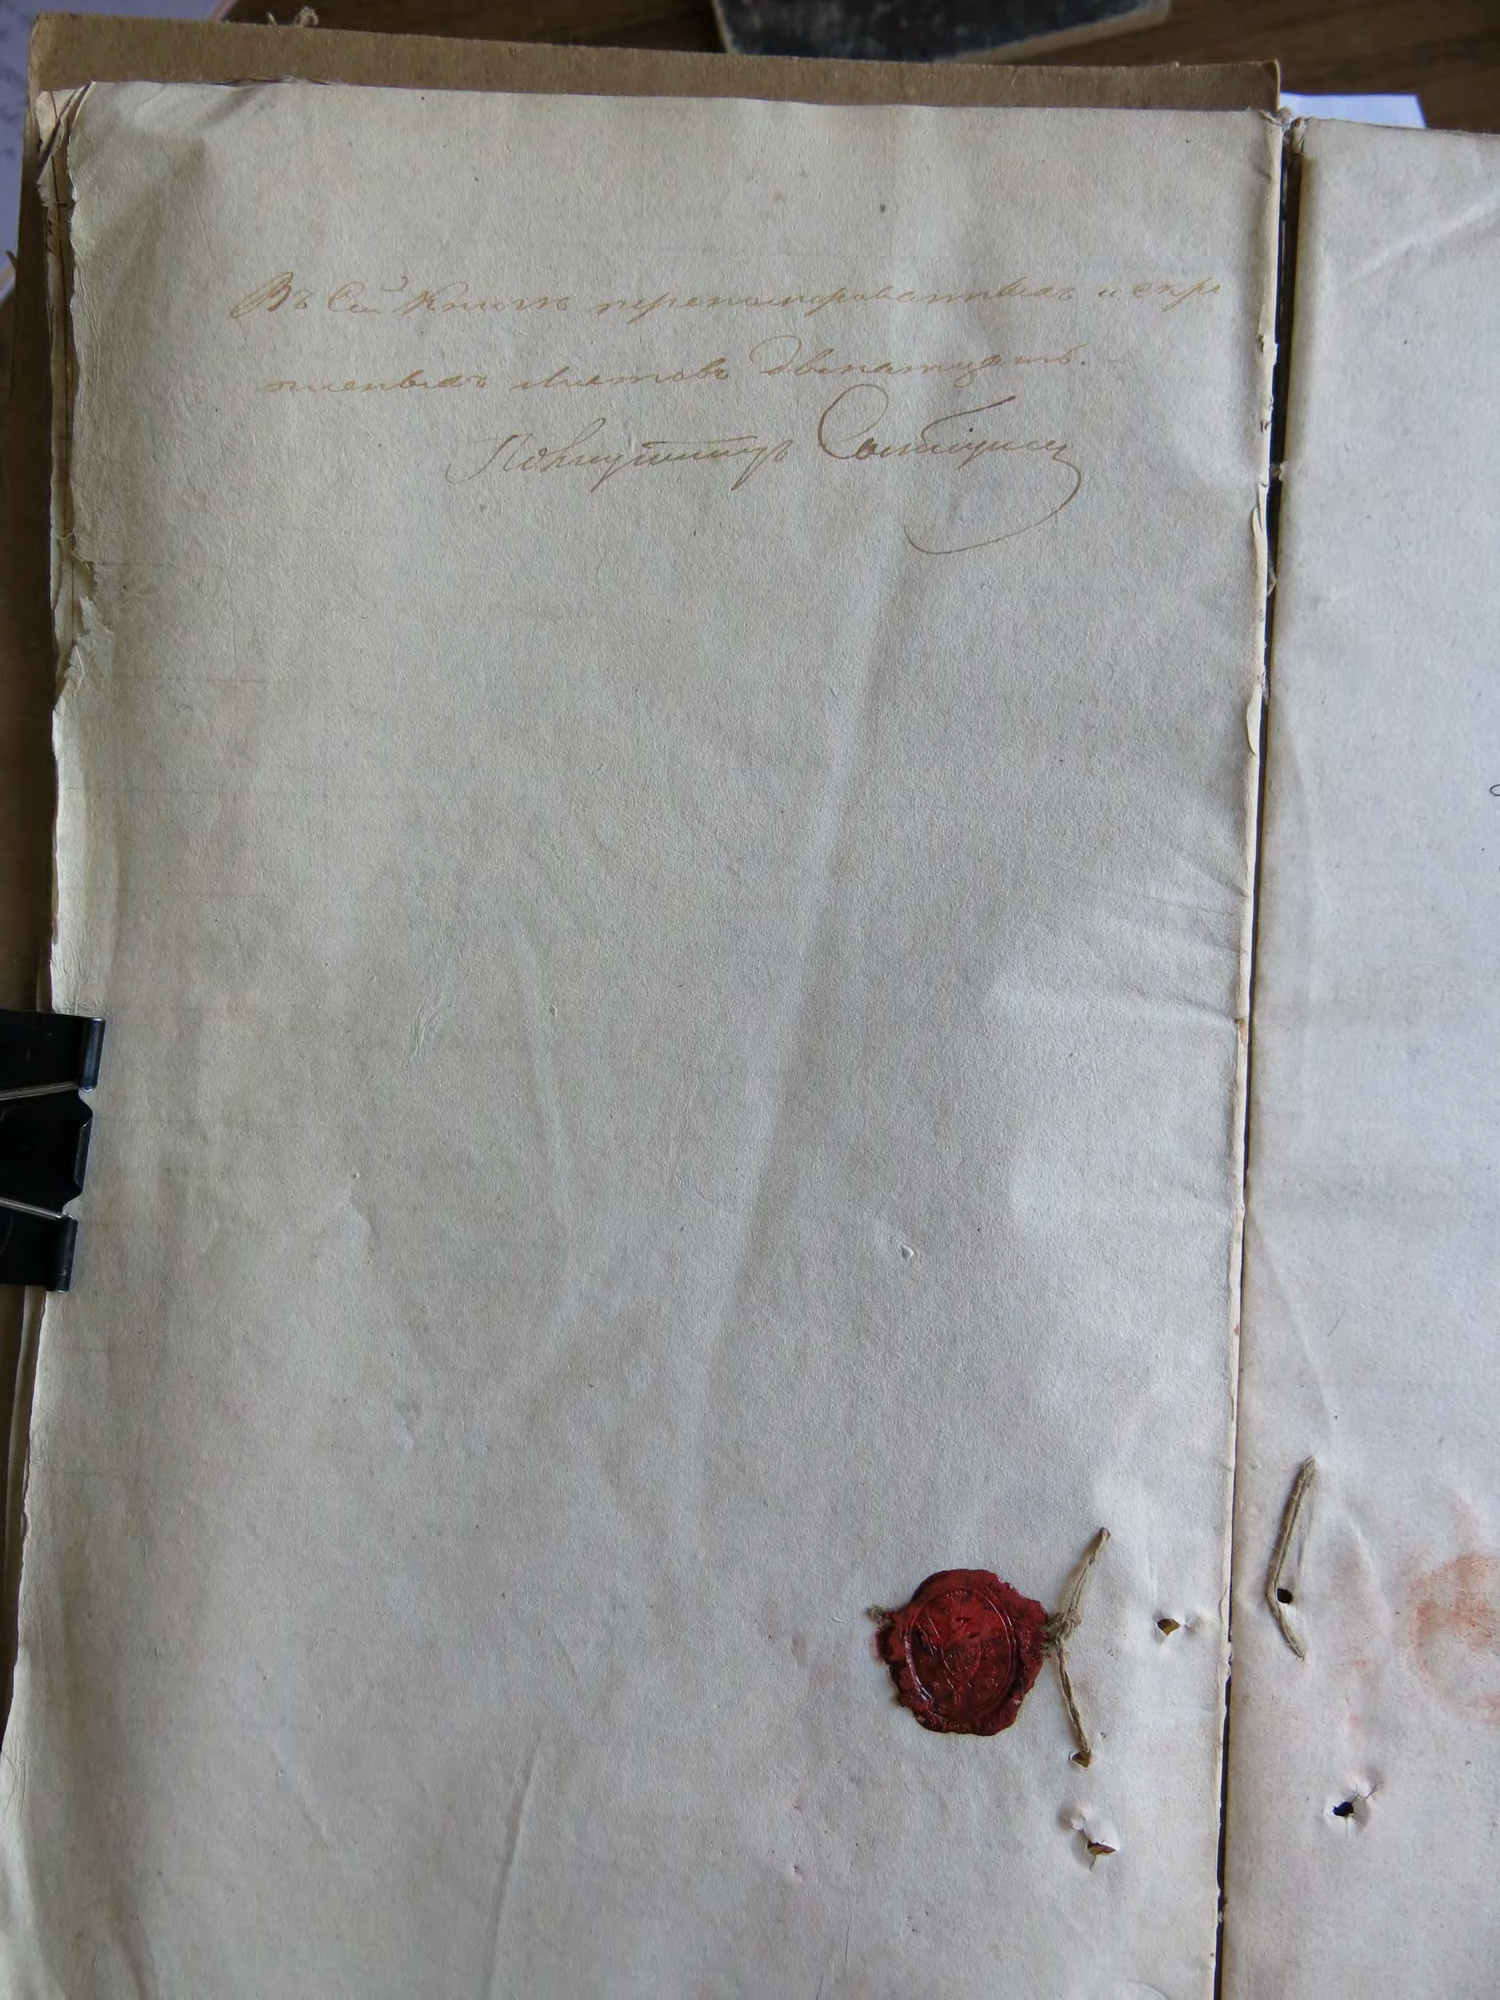 Въ сей Книгѣ перенумерованныхъ и скрѣ
пленныхъ листовъ двенатцать.